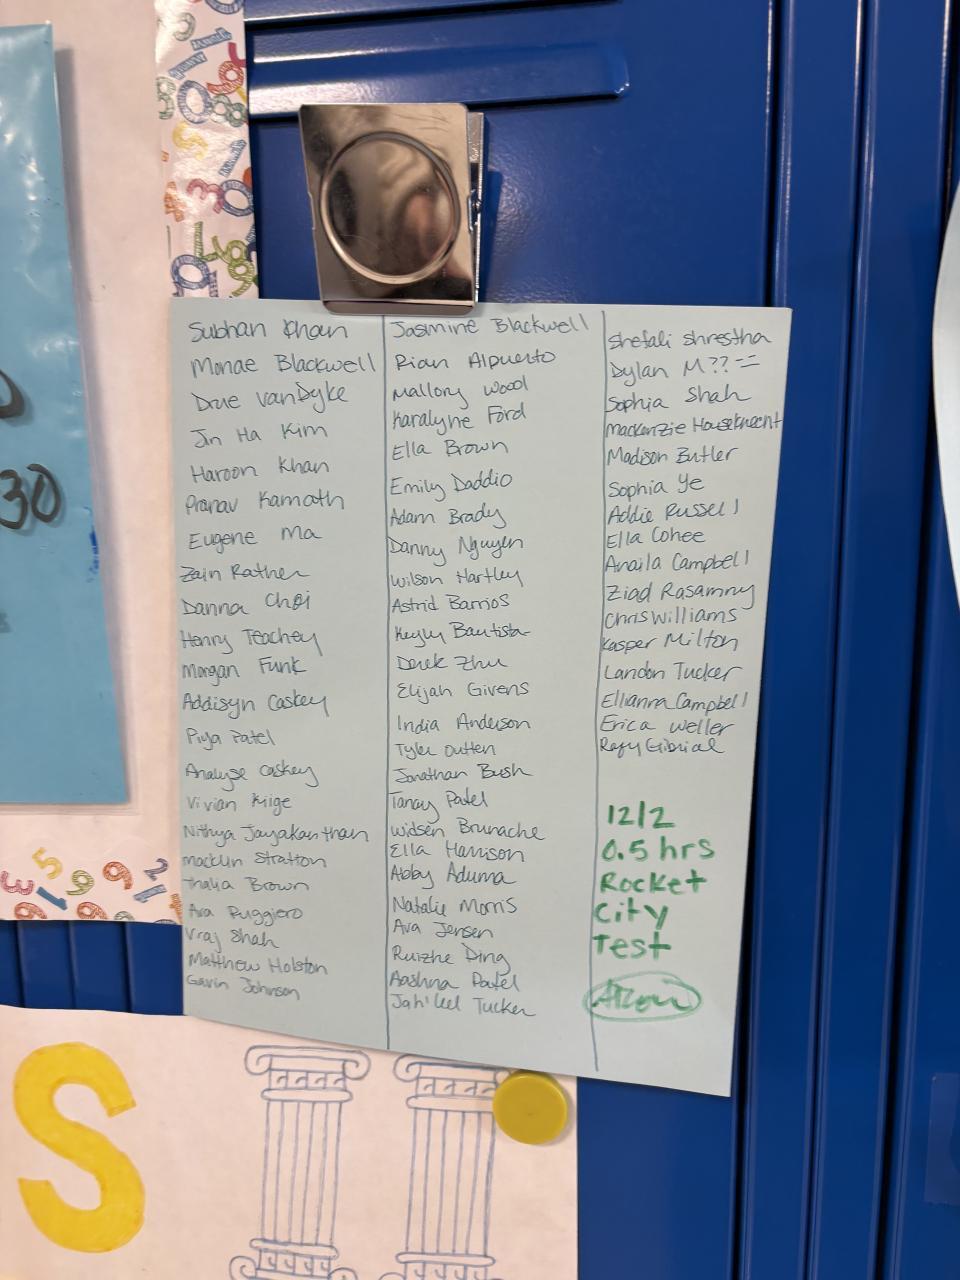 30
Subhan Khan
Monae Blackwell
Drue VanDyke
Jin Ha Kim
Haroon Khan
Pranav Kamath
Eugene Ma
Zain Rather
Danna Choi
Henry Teachey
Morgan Funk
Addisyn Caskey
Piya Patel
Analyse Caskey
Vivian Kiige
Nithya Jayakanthan
Macklin Stratton
Thalia Brown
Ava Ruggiero
Vraj Shah
Matthew Holston
Gavin Johnson
Jasmine Blackwell
Rian Alpuerto
Mallory Wood
Karalyne Ford
Ella Brown
Emily Daddio
Adam Brady
Danny Nguyen
Wilson Hartley
Astrid Barrios
Keyly Bautista
Derek Zhu
Elijah Givens
India Anderson
Tyler Outten
Jonathan Bush
Tanay Patel
Widsen Brunache
Ella Harrison
Abby Aduma
Natalie Morris
Ava Jensen
Ruizhe Ding
Aashna Patel
Tucker
Shefali Shrestha
Dylan M??
Sophia Shah
Mackenzie Houseknecht
Madison Butler
Sophia Ye
Addie Russell
Ella Cohee
Anaila Campbell
Ziad Rasamny
Chris Williams
Kasper Milton
Landon Tucker
Ellianna Campbell
Erica Weller
Rafy Gibrial
12/2
0.5 hrs
Rocket
City
Test
S